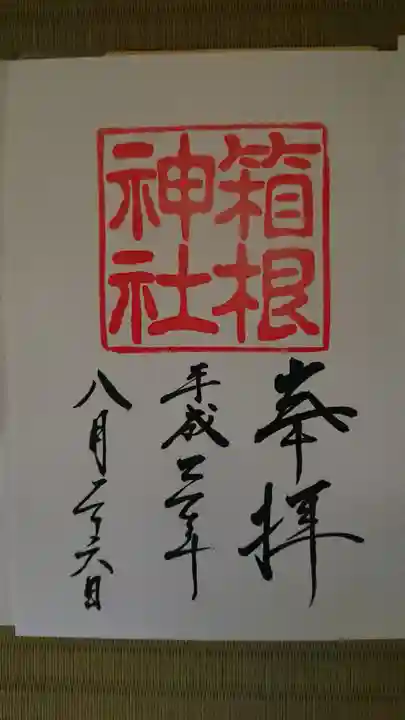 箱根
神社
奉拝
平成 年
八月二十六日